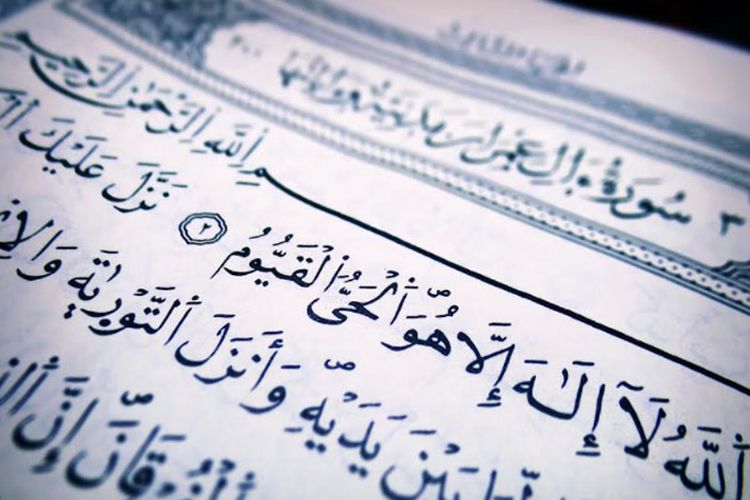 ٣ سُورَةُ آلِ عِمْرَانَ مَدَنِيَّة وَآيَاتُهَا ٢٠٠
بِسْمِ ٱللَّهِ ٱلرَّحْمَٰنِ ٱلرَّحِيمِ
ٱللَّهُ لَآ إِلَٰهَ إِلَّا هُوَ ٱلْحَىُّ ٱلْقَيُّومُ ٢ نَزَّلَ عَلَيْكَ
بَيْنَ يَدَيْهِ وَأَنزَلَ ٱلتَّوْرَىٰةَ
ٱلْفُرْقَانَ إِنَّ